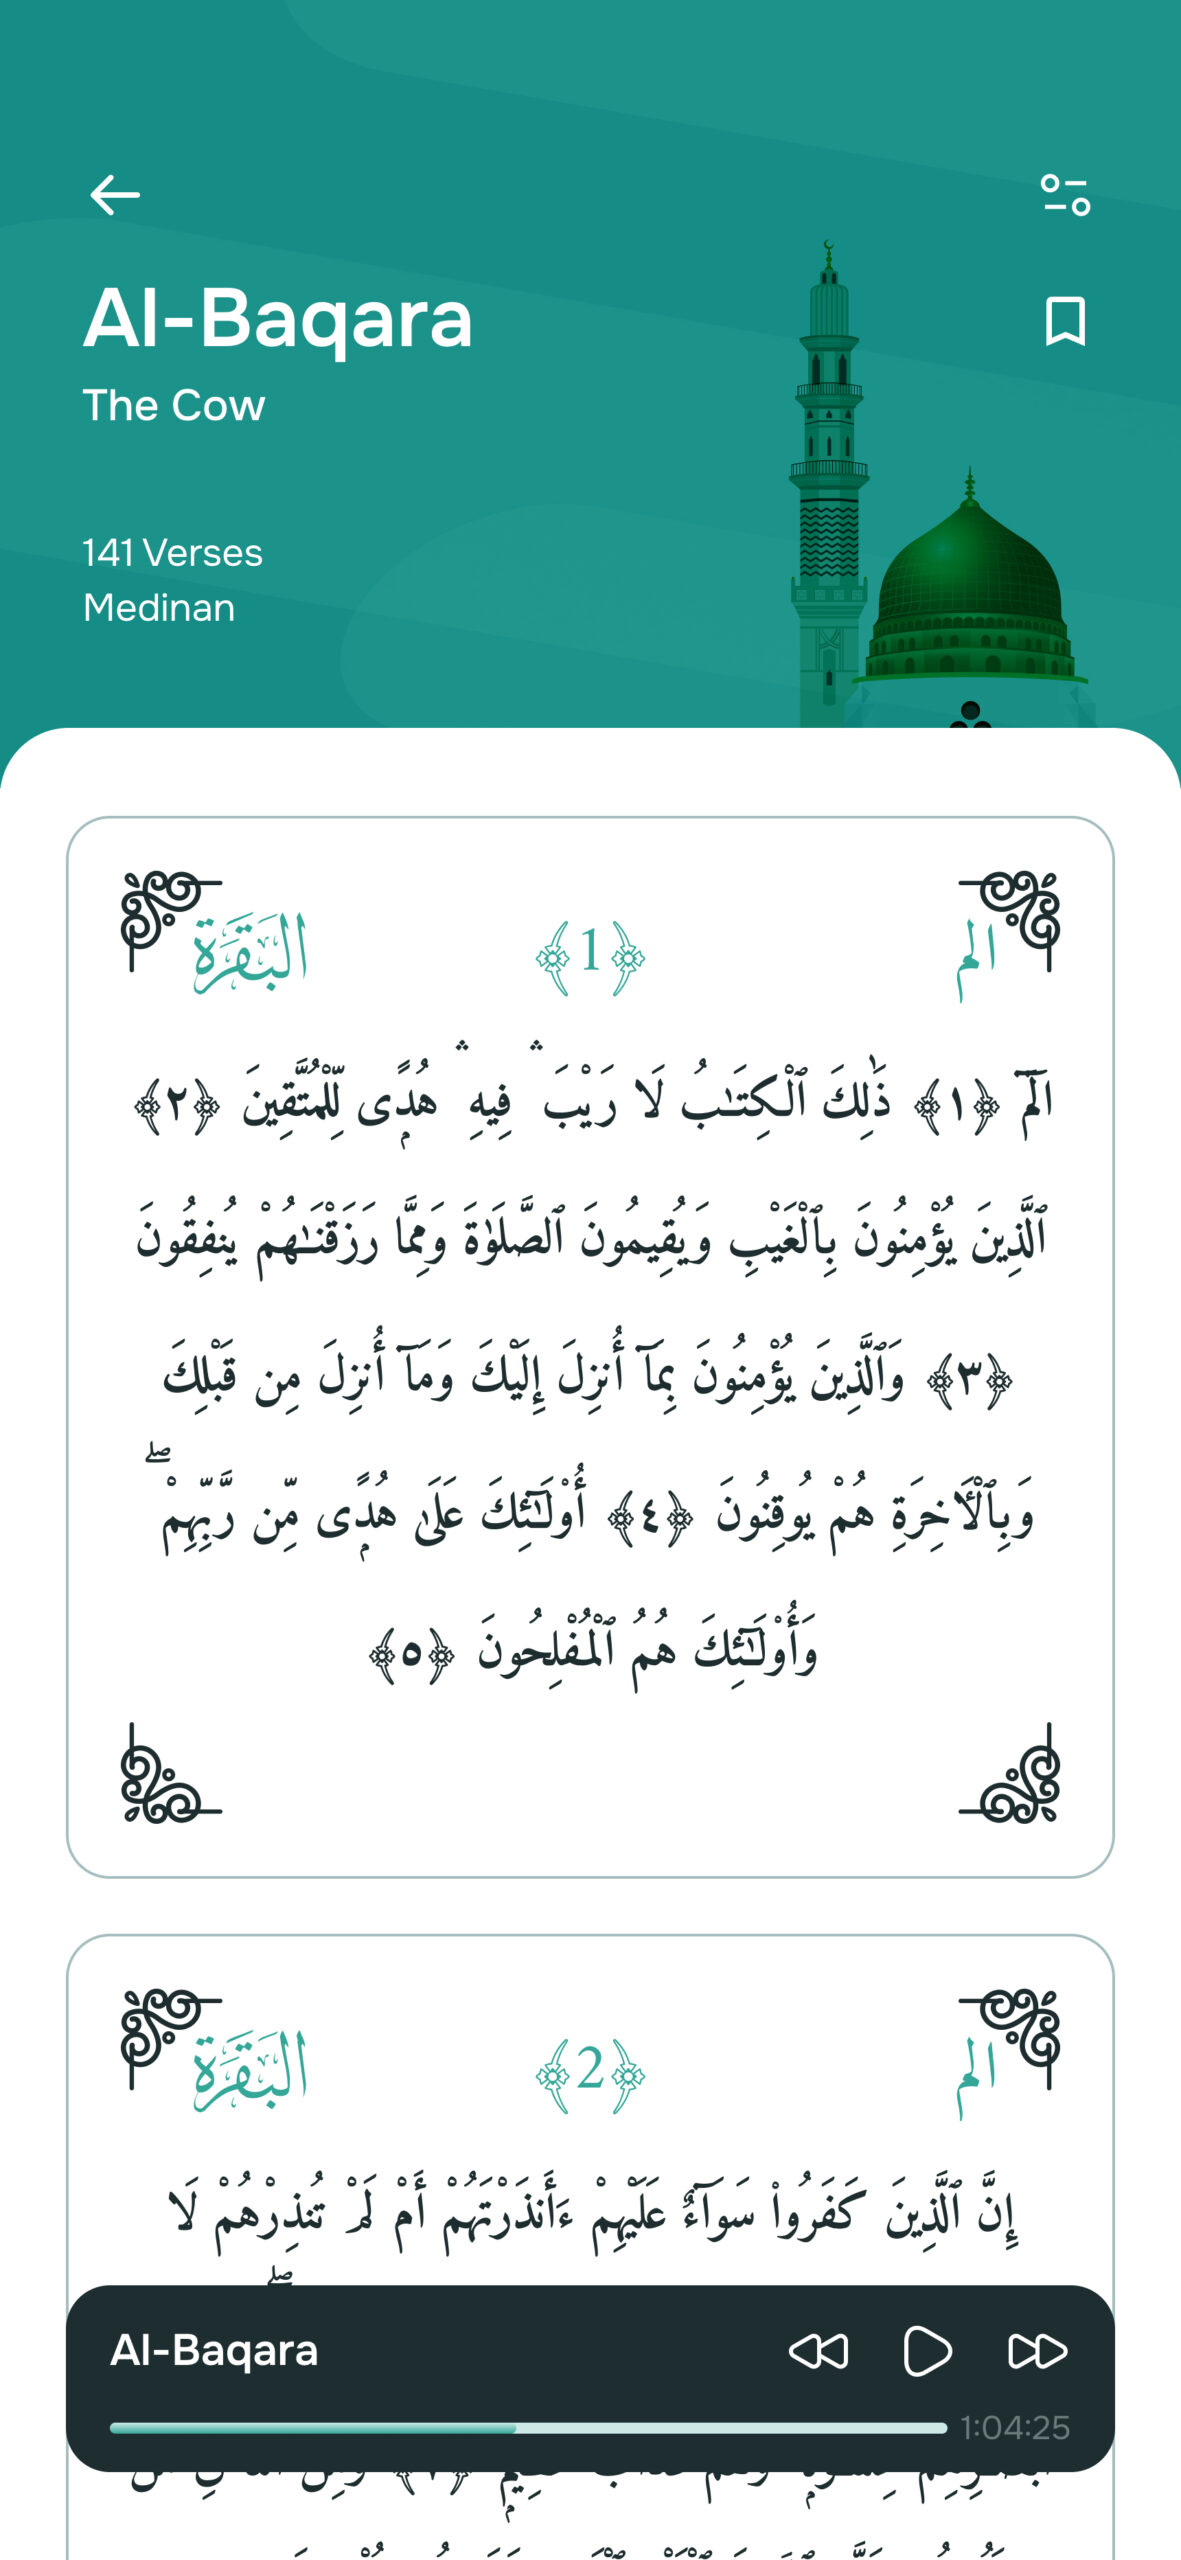 Al-Baqara
The Cow
141 Verses
Medinan
الم ﴿1﴾ البَقَرَة
الٓمٓ ﴿١﴾ ذَٰلِكَ ٱلْكِتَـٰبُ لَا رَيْبَ ۛ فِيهِ ۛ هُدًۭى لِّلْمُتَّقِينَ ﴿٢﴾
ٱلَّذِينَ يُؤْمِنُونَ بِٱلْغَيْبِ وَيُقِيمُونَ ٱلصَّلَوٰةَ وَمِمَّا رَزَقْنَـٰهُمْ يُنفِقُونَ
﴿٣﴾ وَٱلَّذِينَ يُؤْمِنُونَ بِمَآ أُنزِلَ إِلَيْكَ وَمَآ أُنزِلَ مِن قَبْلِكَ
وَبِٱلْـَٔاخِرَةِ هُمْ يُوقِنُونَ ﴿٤﴾ أُو۟لَـٰٓئِكَ عَلَىٰ هُدًۭى مِّن رَّبِّهِمْ ۖ
وَأُو۟لَـٰٓئِكَ هُمُ ٱلْمُفْلِحُونَ ﴿٥﴾
الم ﴿2﴾ البَقَرَة
إِنَّ ٱلَّذِينَ كَفَرُوا۟ سَوَآءٌ عَلَيْهِمْ ءَأَنذَرْتَهُمْ أَمْ لَمْ تُنذِرْهُمْ لَا
Al-Baqara
1:04:25